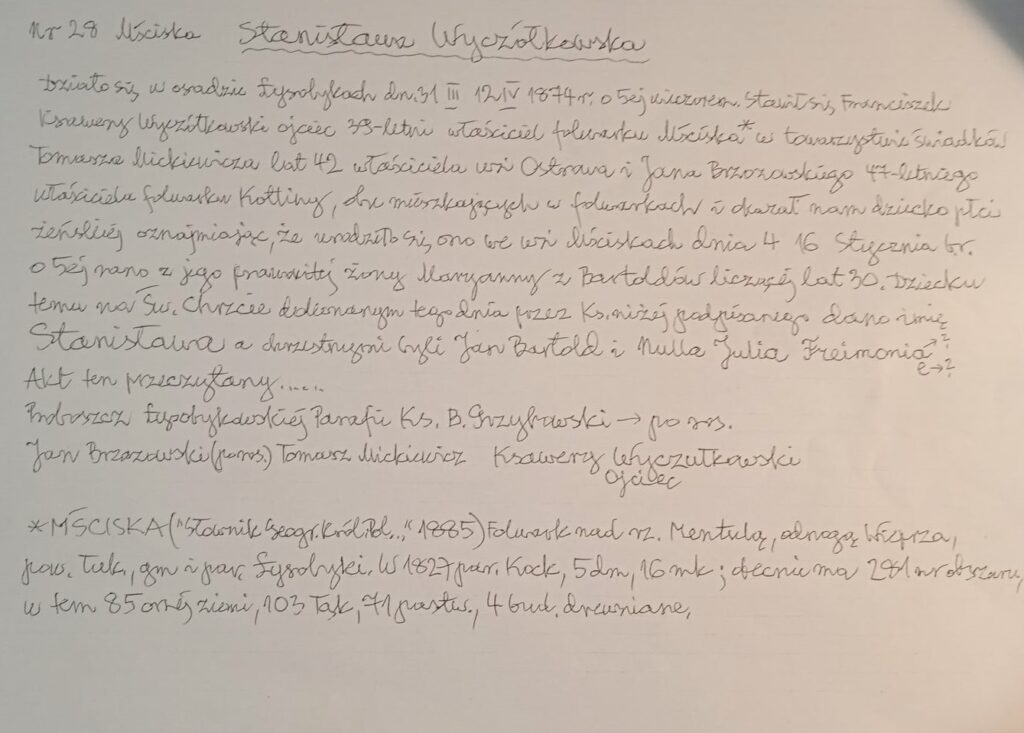 Nr 28 Mściska Stanisława Wyczółkowska
Działo się w osadzie Łysobykach dn. 31 III 12 IV 1874 r. o 5ej wieczorem. Stawił się Franciszek
Ksawery Wyczółkowski ojciec 38-letni właściciel folwarku Mściska* w towarzystwie świadków
Tomasza Mickiewicza lat 42 właściciela wsi Ostrowa i Jana Brzozowskiego 47-letniego
właściciela folwarku Kottiny, obu mieszkających w folwarkach i okazał nam dziecko płci
żeńskiéj oznajmiając, że urodziło się ono we wsi Mściskach dnia 4 16 Stycznia b.r.
o 5éj rano z jego prawowitéj żony Maryanny z Bartoldów liczącéj lat 30. Dziecku
temu na Św. Chrzcie dokonanym tego dnia przez Ks. niżéj podpisanego dano imię
Stanisława a chrzestnymi byli Jan Bartold i Nulla Julia Freimonia → ?
e → ?
Akt ten przeczytany......
Proboszcz Łysobykowskiéj Parafii Ks. B. Grzybowski → po ros.
Jan Brzozowski (po ros.) Tomasz Mickiewicz Ksawery Wyczułkowski
ojciec
* MŚCISKA ("Słownik Geogr. Król. Pol..," 1885) Folwark nad rz. Mentulą, odnogą Wieprza,
pow. Łuk., gm i par. Łysobyki. W 1827 par. Kock, 5 dm, 16 mk; obecnie ma 281 mr obszaru,
w tem 85 ornéj ziemi, 103 łąk, 71 pastw., 4 bud. drewniane,